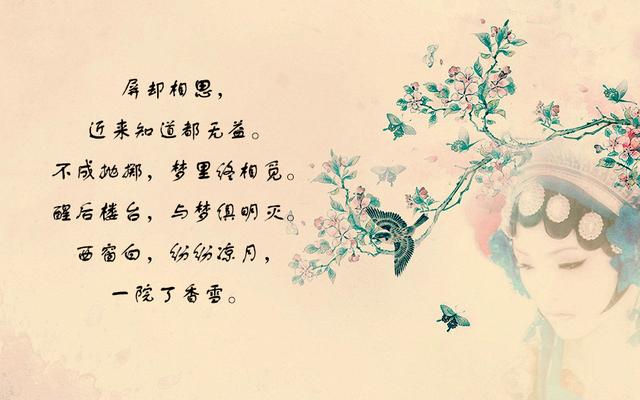 屏却相思，
近来知道都无益。
不成抛掷，梦里终相觅。
醒后楼台，与梦俱明灭。
西窗白，纷纷凉月，
一院丁香雪。